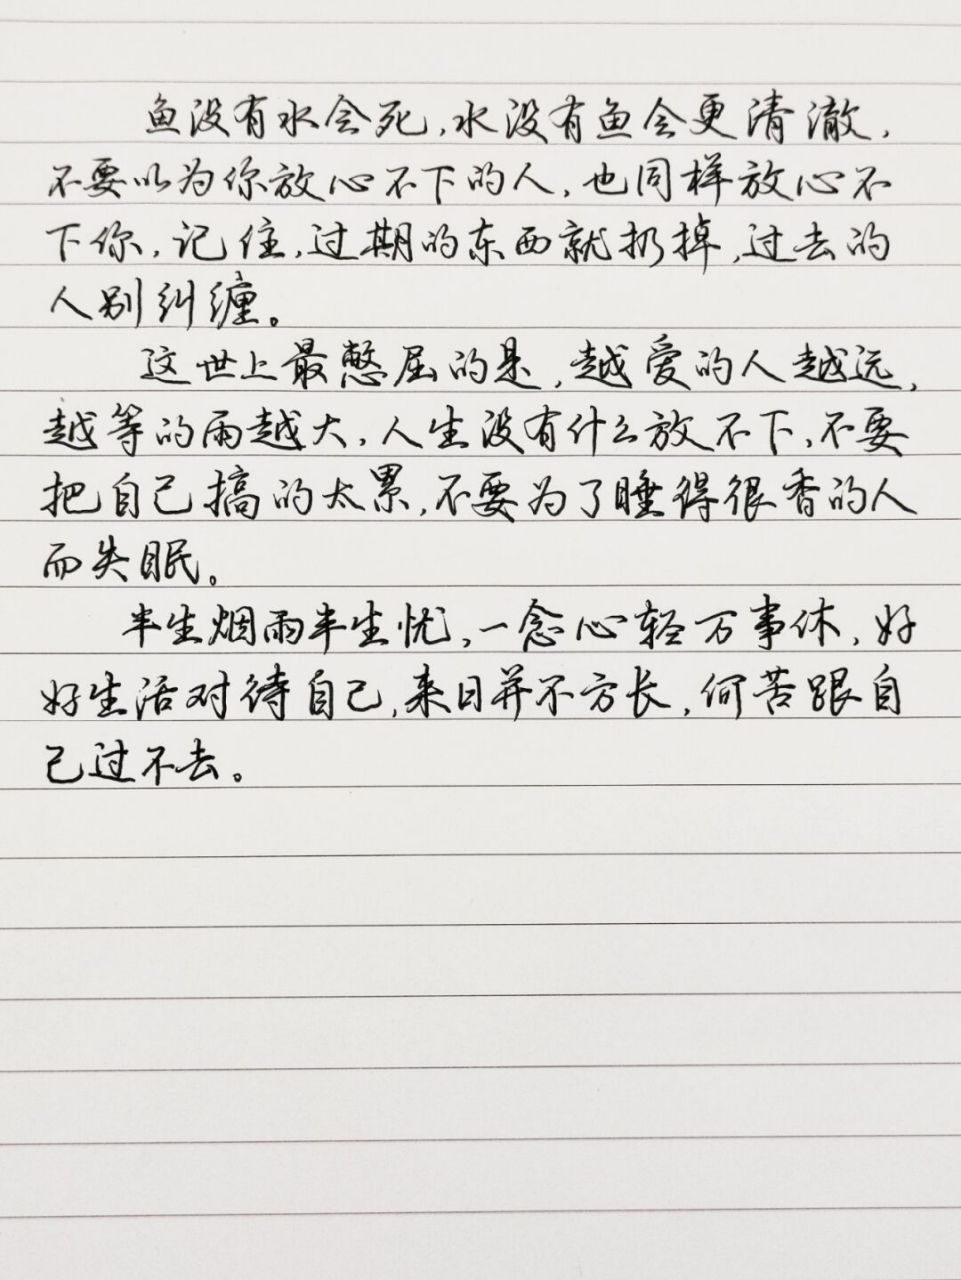 鱼没有水会死,水没有鱼会更清澈,
不要以为你放心不下的人,也同样放心不
下你,记住,过期的东西就扔掉,过去的
人别纠缠。
这世上最憋屈的是,越爱的人越远,
越等的雨越大,人生没有什么放不下,不要
把自己搞的太累,不要为了睡得很香的人
而失眠。
半生烟雨半生忧,一念心轻万事休,好
好生活对待自己,来日并不方长,何苦跟自
己过不去。